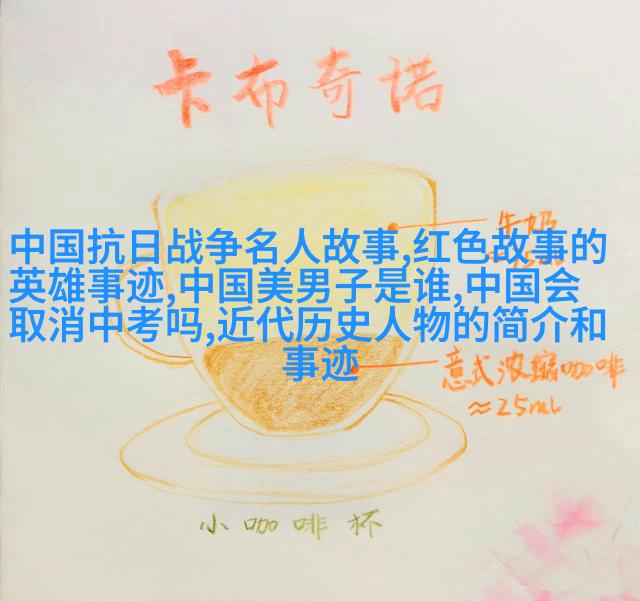 卡布奇诺
牛奶
中国抗日战争名人故事,红色故事的
英雄事迹,中国美男子是谁,中国会
取消中考吗,近代历史人物的简介和
事迹
意式浓缩咖啡
≈25mL
小咖啡杯